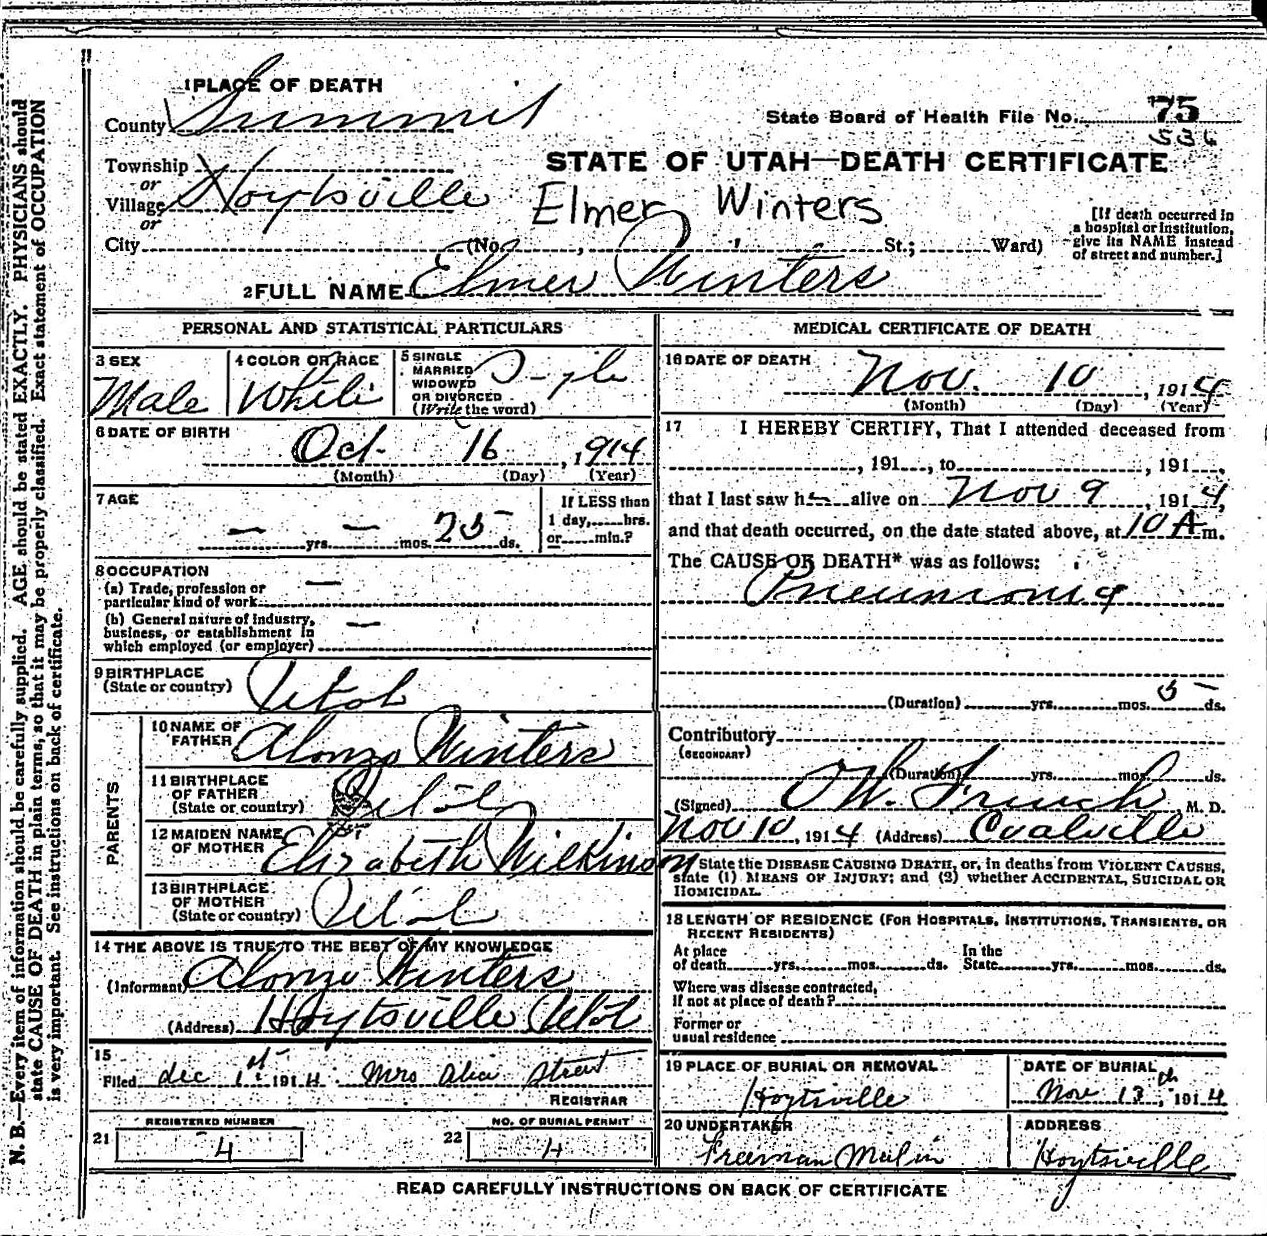 1 PLACE OF DEATH
County Summit
State Board of Health File No. 75
536
Township
or
Village Hoytsville
or
City
STATE OF UTAH—DEATH CERTIFICATE
Elmer Winters
(No. , St.; Ward)
[If death occurred in
a hospital or institution,
give its NAME instead
of street and number.]
2 FULL NAME Elmer Winters
PERSONAL AND STATISTICAL PARTICULARS
3 SEX
Male
4 COLOR OR RACE
White
5 SINGLE
MARRIED
WIDOWED
OR DIVORCED
(Write the word)
Single
6 DATE OF BIRTH
Oct. 16, 1914
(Month) (Day) (Year)
7 AGE
— yrs. — mos. 25 ds.
If LESS than
1 day, hrs.
or min.?
8 OCCUPATION
(a) Trade, profession or
particular kind of work —
(b) General nature of industry,
business, or establishment in
which employed (or employer) —
9 BIRTHPLACE
(State or country) Utah
PARENTS
10 NAME OF
FATHER Alonzo Winters
11 BIRTHPLACE
OF FATHER
(State or country) Utah
12 MAIDEN NAME
OF MOTHER Elizabeth Wilkinson
13 BIRTHPLACE
OF MOTHER
(State or country) Utah
14 THE ABOVE IS TRUE TO THE BEST OF MY KNOWLEDGE
(Informant) Alonzo Winters
(Address) Hoytsville Utah
15
Filed dec 1st 1914. Mrs
REGISTRAR
REGISTERED NUMBER
21 4
NO. OF BURIAL PERMIT
22 4
MEDICAL CERTIFICATE OF DEATH
16 DATE OF DEATH
Nov. 10, 1914
(Month) (Day) (Year)
17 I HEREBY CERTIFY, That I attended deceased from
, 191 , to , 191 ,
that I last saw h alive on Nov 9, 1914,
and that death occurred, on the date stated above, at 10 A m.
The CAUSE OF DEATH* was as follows:
Pneumonia
(Duration) yrs. mos. 5 ds.
Contributory
(SECONDARY)
(Duration) yrs. mos. ds.
(Signed) O W. French, M. D.
Nov 10, 1914 (Address) Coalville
State the DISEASE CAUSING DEATH, or, in deaths from VIOLENT CAUSES,
state (1) MEANS OF INJURY; and (2) whether ACCIDENTAL, SUICIDAL OR
HOMICIDAL.
18 LENGTH OF RESIDENCE (FOR HOSPITALS, INSTITUTIONS, TRANSIENTS, OR
RECENT RESIDENTS)
At place
of death yrs. mos. ds.
In the
State yrs. mos. ds.
Where was disease contracted,
if not at place of death?
Former or
usual residence
19 PLACE OF BURIAL OR REMOVAL
Hoytsville
DATE OF BURIAL
Nov 13th, 1914
20 UNDERTAKER
Freeman Malin
ADDRESS
Hoytsville
READ CAREFULLY INSTRUCTIONS ON BACK OF CERTIFICATE
N. B.—Every item of information should be carefully supplied. AGE should be stated EXACTLY. PHYSICIANS should
state CAUSE OF DEATH in plain terms, so that it may be properly classified. Exact statement of OCCUPATION
is very important. See instructions on back of certificate.